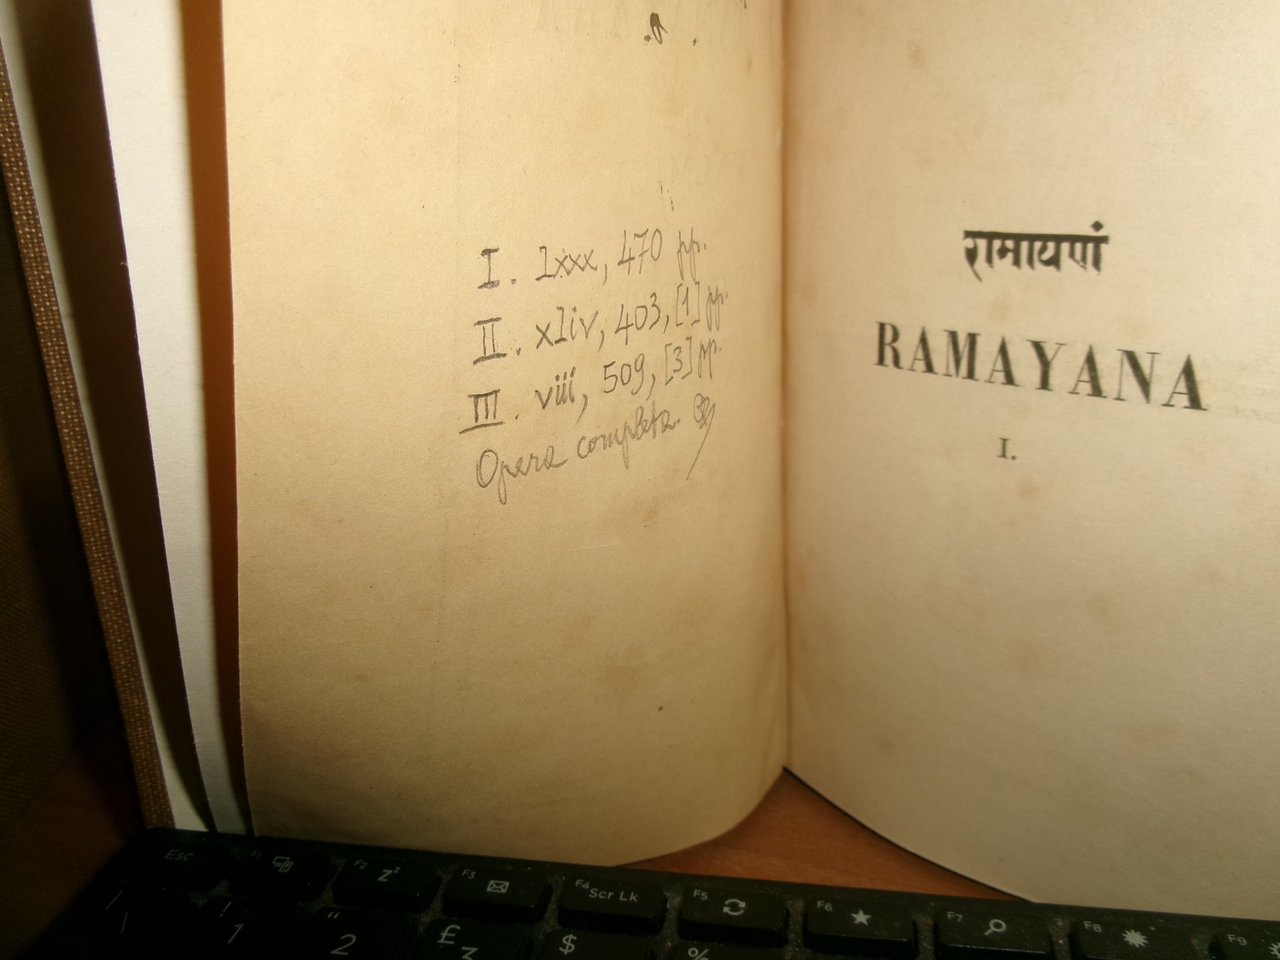 I. lxxx, 470 pp.
II. xliv, 403, [1] pp.
III. viii, 509, [3] pp.
Opera completa.
रामायणं
RAMAYANA
I.
Esc F1 F2 Zz F3 F4 Scr Lk F5 F6 F7 F8 F9
! 1 " 2 £ 3 $ %